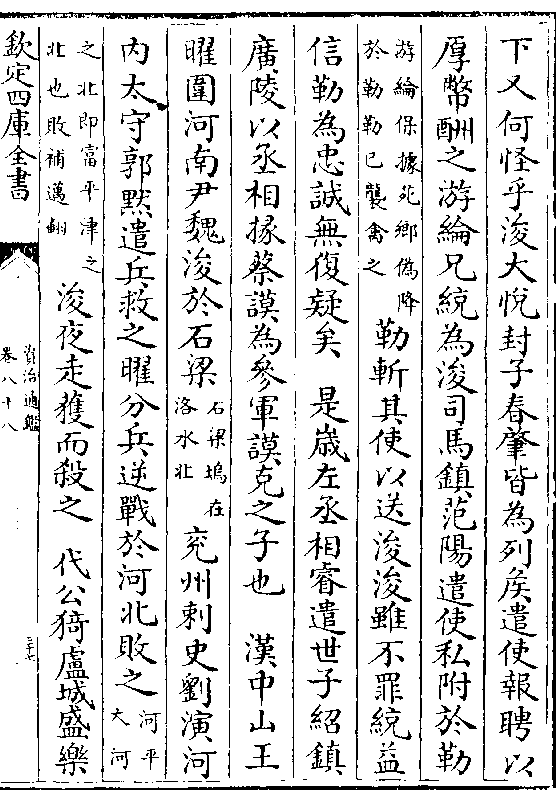 下又何怪乎浚大悅封子春肇皆為列矦遣使報聘以
厚幣酬之游綸兄統為浚司馬鎮范陽遣使私附於勒
游綸保據苑鄉偽降
於勒勒已襲禽之
勒斬其使以送浚浚雖不罪統益
信勒為忠誠無復疑矣　是嵗左丞相睿遣世子紹鎮
廣陵以丞相掾蔡謨為參軍謨克之子也　漢中山王
曜圍河南尹魏浚於石梁
石梁塢在
洛水北
兖州刺史劉演河
内太守郭黙遣兵救之曜分兵逆戰於河北敗之
河平
大河
之北即富平津之
北也敗補邁翻
浚夜走獲而殺之　代公猗盧城盛樂
欽定四庫全書
資治通鑑
卷八十八
三十七